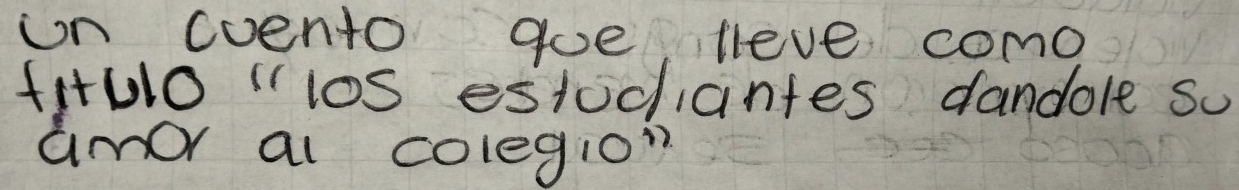 un cuento que lleve como
titulo "los estudiantes dandole su
amor al colegio"